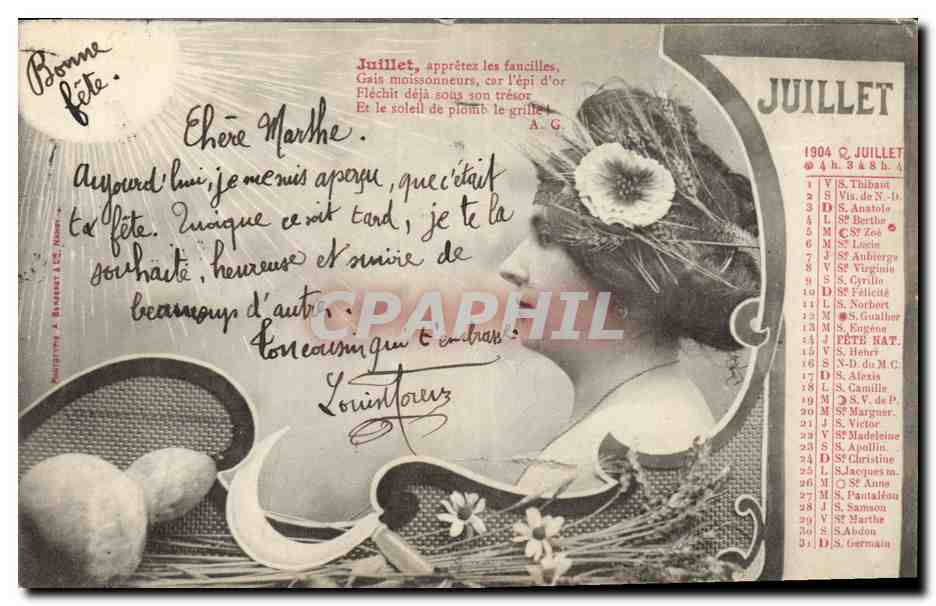 Bonne
fête.
Juillet, apprêtez les faucilles,
Gais moissonneurs, car l'épi d'or
Fléchit déjà sous son trésor
Et le soleil de plomb le grille!
A. G.
Chère Marthe.
Aujourd'hui, je me suis aperçu, que c'était
ta fête. Quoique ce soit tard, je te la
souhaite, heureuse et suivie de
beaucoup d'autres.
Ton cousin qui t'embrasse.
Louis
PHOTOTYPIE A. BERGERET & Cie, NANCY
CPARPHIL
JUILLET
1904 JUILLET
4 h. 3 à 8 h. 4
1 V S. Thibaut
2 S Vis. de N.-D.
3 D S. Anatole
4 L Ste Berthe
5 M Ste Zoé
6 M Ste Lucie
7 J S. Aubierge
8 V Ste Virginie
9 S S. Cyrille
10 D Ste Félicité
11 L S. Norbert
12 M S. Gualber
13 M S. Eugène
14 J FÊTE NAT.
15 V S. Henri
16 S N-D. du M. C.
17 D S. Alexis
18 L S. Camille
19 M S. V. de P.
20 M Ste Marguer.
21 J S. Victor
22 V Ste Madeleine
23 S S. Apollin.
24 D Ste Christine
25 L S. Jacques m.
26 M Ste Anne
27 M S. Pantaléon
28 J S. Samson
29 V Ste Marthe
30 S S. Abdon
31 D S. Germain